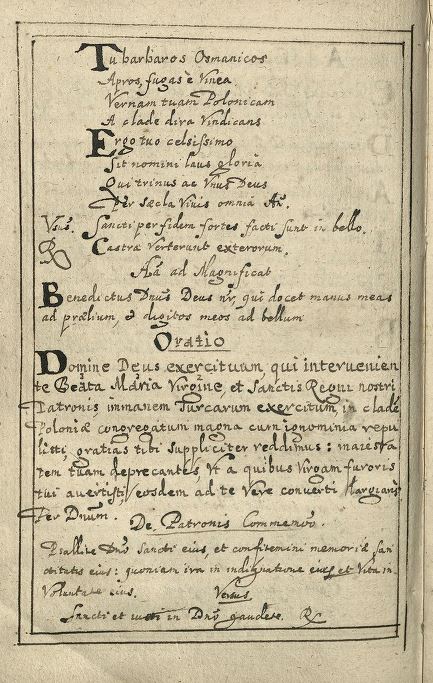 Tu barbaros Osmanicos
Apros, fugas è Vinea
Vernam tuam Polonicam
A clade dira Vindicans
Ergo tuo celsissimo
Sit nomini laus gloria
Qui trinus ac Vnus Deus
Per sæcla Viuis omnia Am̄.
Sancti per fidem fortes facti sunt in bello.
R Castra Verterunt exterorum.
Aã ad Magnificat
Benedictus Dnus Deus nr, qui docet manus meas
ad prælium, & digitos meos ad bellum
Oratio
Domine Deus exercituum, qui intervenien
te Beata Maria Virgine, et Sanctis Regni nostri
Patronis immanem Turcarum exercitum, in clade
Poloniæ congregatum magna cum ignominia repu
listi, gratias tibi suppliciter reddimus: maiesta
tem tuam deprecantes, Vt a quibus Virgam furoris
tui avertisti, eosdem ad te Vere converti
Per Dnum.
De Patronis Commemo.
Psallite Dno Sancti eius, et confitemini memoriæ San
ctitatis eius: quoniam ira in indignatione eius et Vita in
Voluntate eius.
Versus
Sancti et iusti in Dno gaudete. R